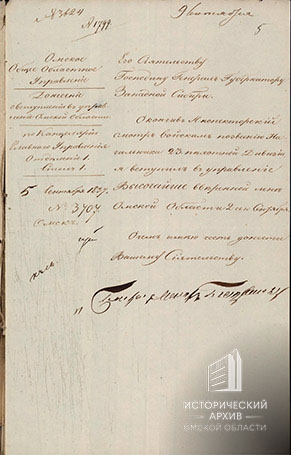 № 3624
5
Омское
Общее Областное
Управление
Донесение
о вступлении в управ-
Омской Области
по Канцелярии
Главного Управления
Отделение 1.
Стол 1.
5 Сентября 1837.
№ 3707.
Омск.
Его Сиятельству
Господину Генерал Губернатору
Западной Сибири.
Окончив Инспекторский
смотр войскам
23 пехотной Дивизии
я вступил в управление
Высочайше вверенной мне
Омской Области 2 сего Сентября.
О чем имею честь донести
Вашему Сиятельству.
Генерал Маиор
ИСТОРИЧЕСКИЙ
АРХИВ
ОМСКОЙ ОБЛАСТИ